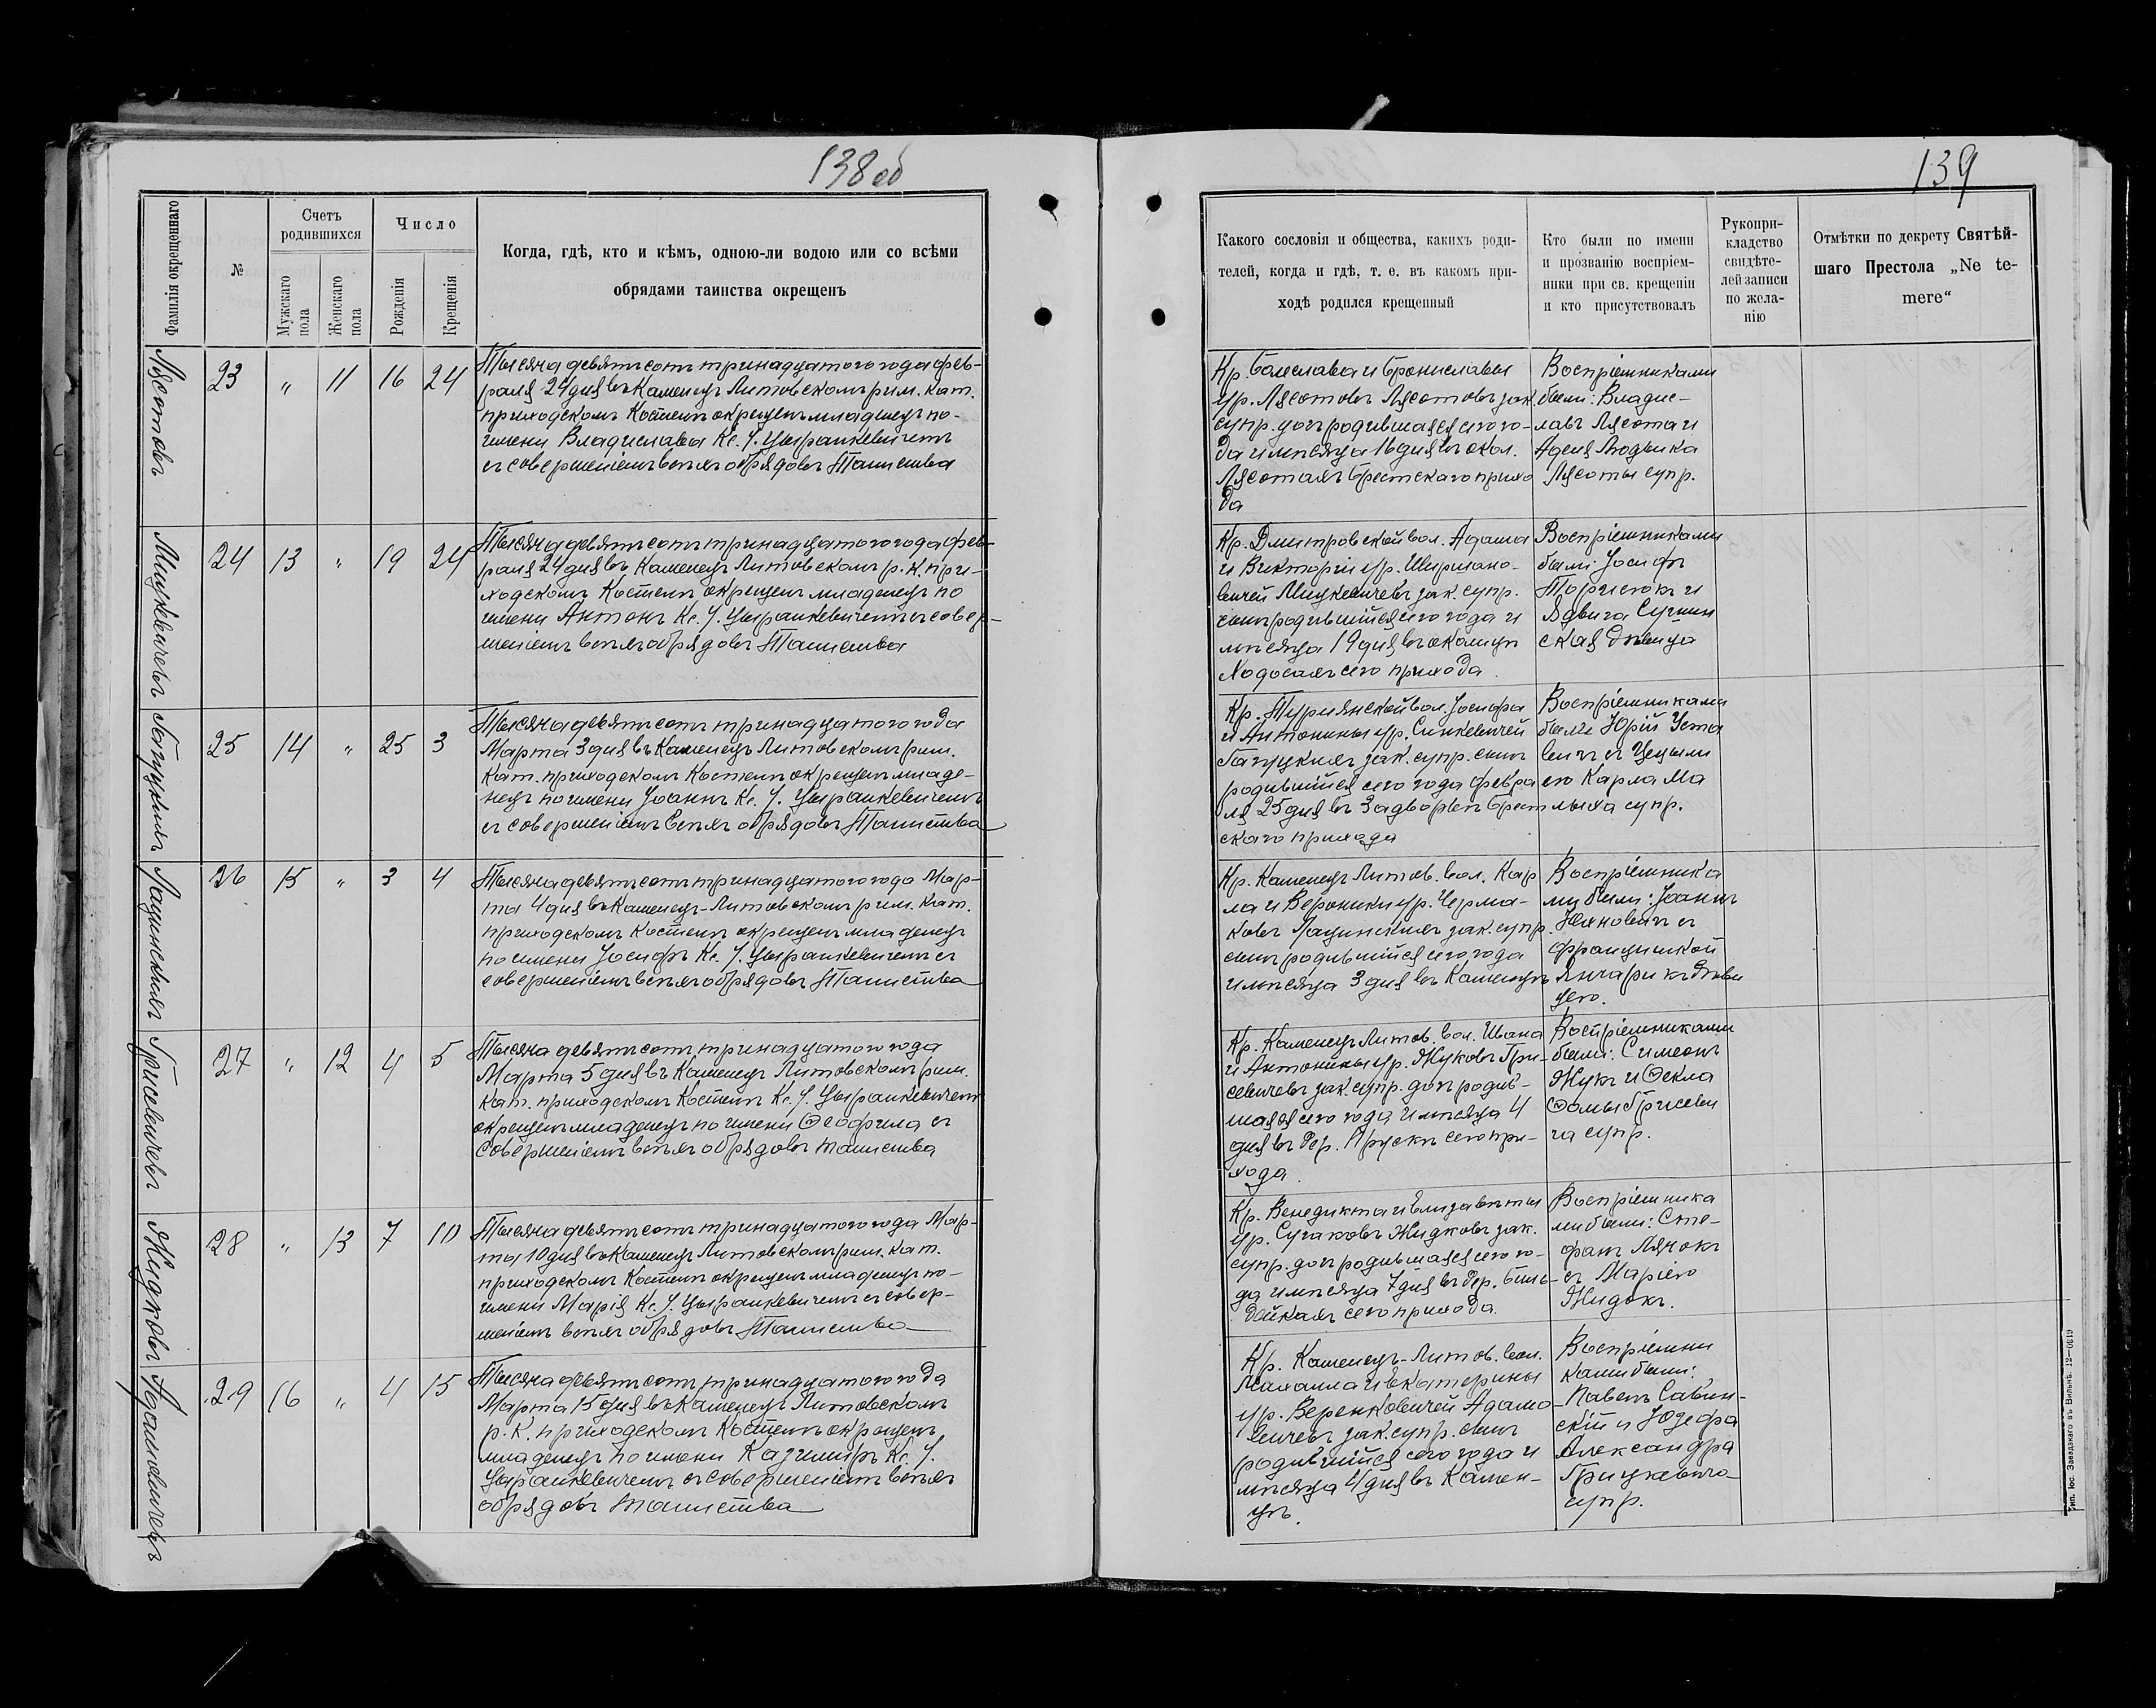 138 об
Фамилія окрещеннаго
№
Счетъ
родившихся
Мужскаго
пола
Женскаго
пола
Число
Рожденія
Крещенія
Когда, гдѣ, кто и кѣмъ, одною-ли водою или со всѣми
обрядами таинства окрещенъ
Лясотовъ
23 „ 11 16 24
Тысяча девятьсотъ тринадцатого года фев-
раля 24 дня въ Каменецъ Литовскомъ рим. кат.
приходскомъ Костелѣ окрещенъ младенецъ по-
имени Владислава Кс. У. Цыранкевичемъ
съ совершеніемъ всѣхъ обрядовъ Таинства
Мицкевичевъ
24 13 „ 19 24
Тысяча девятьсотъ тринадцатого года фев-
раля 24 дня въ Каменецъ Литовскомъ р. к. при-
ходскомъ Костелѣ окрещенъ младенецъ по
имени Антонъ Кс. У. Цыранкевичемъ съ совер-
шеніемъ всѣхъ обрядовъ Таинства
Гапуцкихъ
25 14 „ 25 3
Тысяча девятьсотъ тринадцатого года
Марта 3 дня въ Каменецъ Литовскомъ рим.
кат. приходскомъ Костелѣ окрещенъ младе-
нецъ по имени Іоаннъ Кс. У. Цыранкевичемъ
съ совершеніемъ всѣхъ обрядовъ Таинства
Лацинскихъ
26 15 „ 3 4
Тысяча девятьсотъ тринадцатого года Мар-
та 4 дня въ Каменецъ-Литовскомъ рим. кат.
приходскомъ Костелѣ окрещенъ младенецъ
по имени Іосифъ Кс. У. Цыранкевичемъ съ
совершеніемъ всѣхъ обрядовъ Таинства
Грисевичевъ
27 „ 12 4 5
Тысяча девятьсотъ тринадцатого года
Марта 5 дня въ Каменецъ Литовскомъ рим.
кат. приходскомъ Костелѣ Кс. У. Цыранкевичемъ
окрещенъ младенецъ по имени Ѳеофила съ
совершеніемъ всѣхъ обрядовъ таинства
Жидковъ
28 „ 13 7 10
Тысяча девятьсотъ тринадцатого года Мар-
та 10 дня въ Каменецъ Литовскомъ рим. кат.
приходскомъ Костелѣ окрещенъ младенецъ по-
имени Марія Кс. У. Цыранкевичемъ съ совер-
шеніемъ всѣхъ обрядовъ Таинства
Адамовичевъ
29 16 „ 4 15
Тысяча девятьсотъ тринадцатого года
Марта 15 дня въ Каменецъ Литовскомъ
р. к. приходскомъ Костелѣ окрещенъ
младенецъ по имени Казимиръ Кс. У.
Цыранкевичемъ съ совершеніемъ всѣхъ
обрядовъ таинства
139
Какого сословія и общества, какихъ роди-
телей, когда и гдѣ, т. е. въ какомъ при-
ходѣ родился крещенный
Кто были по имени
и прозванію воспріем-
ники при св. крещеніи
и кто присутствовалъ
Рукопри-
кладство
свидѣте-
лей записи
по жела-
нію
Отмѣтки по декрету Святѣй-
шаго Престола „Ne te-
mere“
Кр. Болеслава и Брониславы
ур. Лясотовъ Лясотовъ зак.
супр. дочь родившаяся сего го-
да и мѣсяца 16 дня въ окол.
Лясотахъ Брестскаго прихо
да
Воспріемниками
были: Владис-
лавъ Лясота и
Аделя Людвика
Лясоты супр.
Кр. Дмитровской вол. Адама
и Викторіи ур. Ширмано-
вичей Мицкевичевъ зак. супр.
сынъ родившійся сего года и
мѣсяца 19 дня въ околицѣ
Ходосахъ сего прихода
Воспріемниками
были: Іосифъ
и
Ядвига
ская дѣвица
Кр. Турнянской вол. Іосифа
и Антонины ур. Синкевичей
Гапуцкихъ зак. супр. сынъ
родившійся сего года Февра
ля 25 дня въ Задворье Брест
скаго прихода
Воспріемниками
были Юрій Уста
вичъ съ Цецыли
ею Карла Ма
лыха супр.
Кр. Каменецъ Литов. вол. Кар
ла и Вероники ур. Черма-
ковъ Лацинскихъ зак. супр.
сынъ родившійся сего года
и мѣсяца 3 дня въ Каменцѣ
Воспріемника
ми были: Іоаннъ
Юхновичъ съ
Францишкой
Янчарикъ дѣви
цею.
Кр. Каменецъ Литов. вол. Ивана
и Антонины ур. Жуковъ Гри-
севичевъ зак. супр. дочь родив-
шаяся сего года и мѣсяца 4
дня въ дер. Прускѣ сего при-
хода.
Воспріемниками
были: Симеонъ
Жукъ и Ѳекла
Ѳомы Грисеви
ча супр.
Кр. Венедикта и Елизаветы
ур. Сучаковъ Жидковъ зак.
супр. дочь родившаяся сего го-
да и мѣсяца 7 дня въ дер.
сего прихода.
Воспріемника
ми были: Сте-
фанъ Лячокъ
съ Маріею
Жидокъ.
Кр. Каменецъ-Литов. вол.
Михаила и Екатерины
ур. Веренковичей Адамо
вичевъ зак. супр. сынъ
родившійся сего года и
мѣсяца 4 дня въ Камен-
цѣ.
Воспріемни
ками были:
Павелъ Савин-
скій и Юзефа
Александра
Грицкевича
супр.
Тип. Іос. Завадзкаго въ Вильнѣ. 12—0619